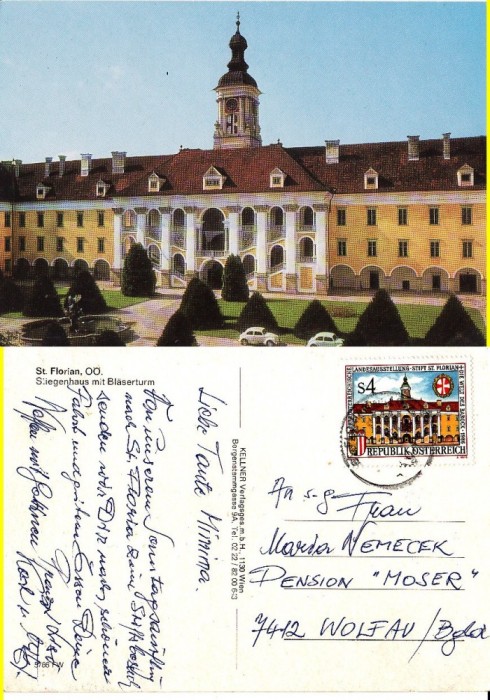 St. Florian, OÖ.
Stiegenhaus mit Bläserturm
Liebe Tante Minina.
Von unserem Sonntagsausflug
nach St. Florian zum Stiftbesuch
senden wir Dir nach schöner
Fahrt und gutem Essen Deine
5166 FW
KELLNER Verlagsges.m.b.H., 1130 Wien
Bergenstammgasse 9A, Tel. 02 22 / 82 00 6-3
LANDESAUSSTELLUNG · STIFT ST. FLORIAN
WELT DES BAROCK · 1986
S4
REPUBLIK ÖSTERREICH
An s-g Frau
Maria NEMECEK
PENSION "MOSER"
7412 WOLFAU / Bgld